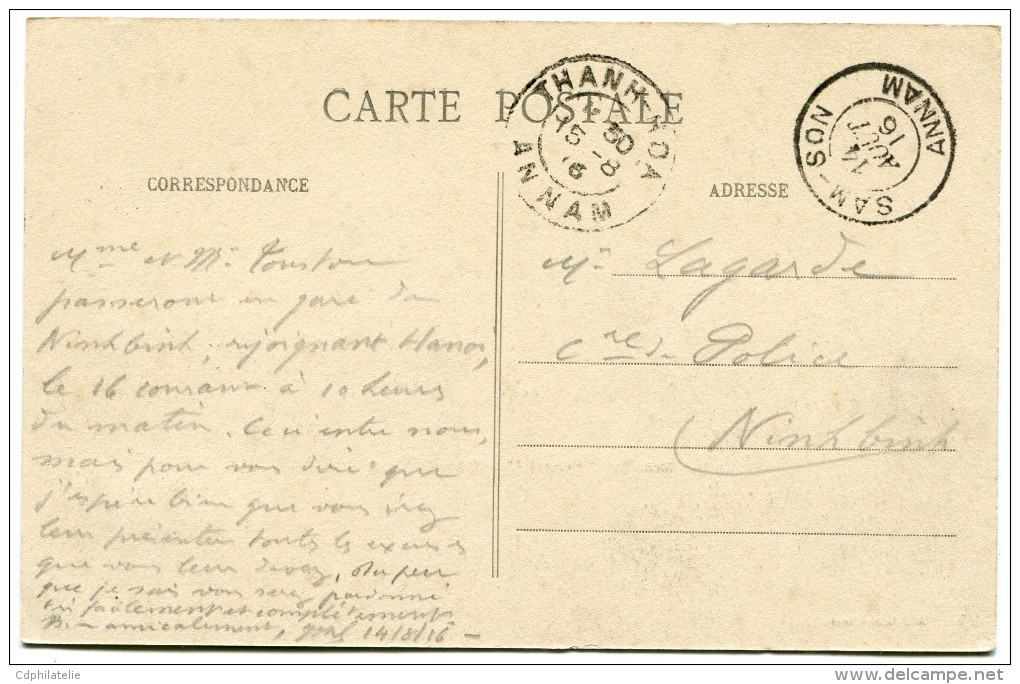 CARTE POSTALE
THANH-HOA
30
15-8
16
ANNAM
SAM-SON
14
AOUT
16
ANNAM
CORRESPONDANCE
ADRESSE
Mme et Mr
passeront en gare de
Ninhbinh, rejoignant Hanoi,
le 16 courant à 10 heures
du matin. Ceci entre nous,
mais pour vous dire que
j'espère bien que vous irez
leur présenter toutes les excuses
que vous leur devez,
que je sais vous serez pardonné
très facilement et complètement
Bien amicalement, 14/8/16 -
Mr Lagarde
Cre de Police
Ninhbinh
Cdphilatelie
delcampe.net